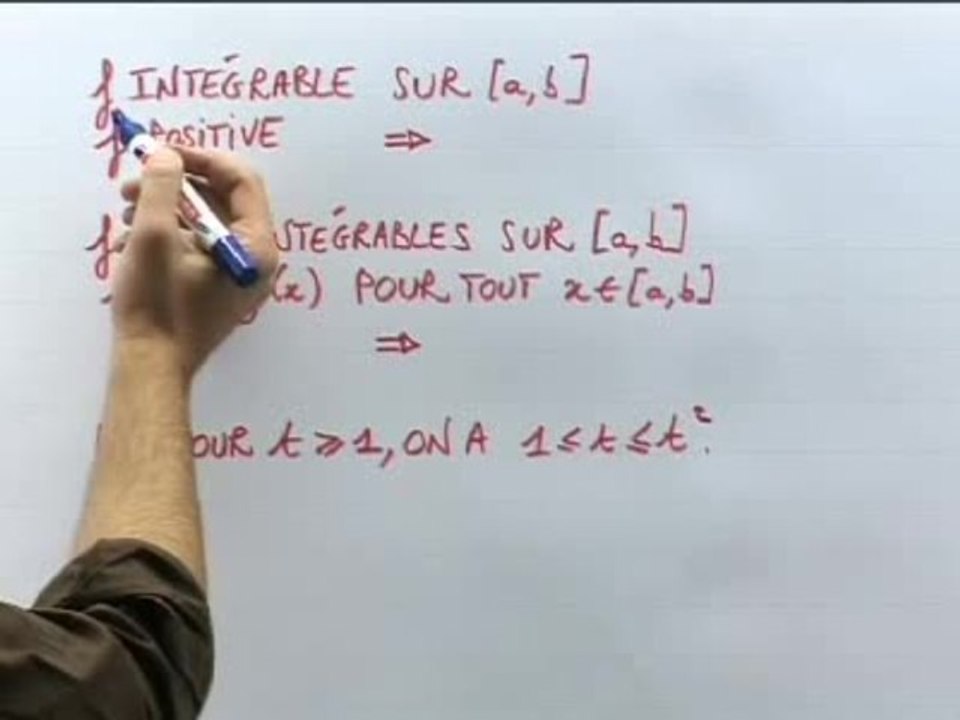 f INTÉGRABLE SUR [a,b]
f POSITIVE ⇒
f INTÉGRABLES SUR [a,b]
(x) POUR TOUT x∈[a,b]
⇒
POUR t ⩾ 1, ON A 1 ≤ t ≤ t².